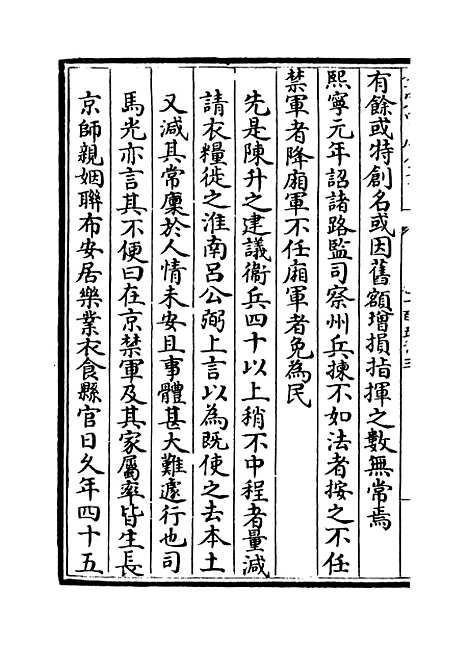 有餘或特創名或因舊額增損指揮之數無常焉
熙寧元年詔諸路監司察州兵揀不如法者按之不任
禁軍者降廂軍不任廂軍者免為民
先是陳升之建議衛兵四十以上稍不中程者量減
請衣糧徙之淮南呂公弼上言以為既使之去本土
又減其常廩於人情未安且事體甚大難遽行也司
馬光亦言其不便曰在京禁軍及其家屬率皆生長
京師親姻聯布安居樂業衣食縣官日久年四十五